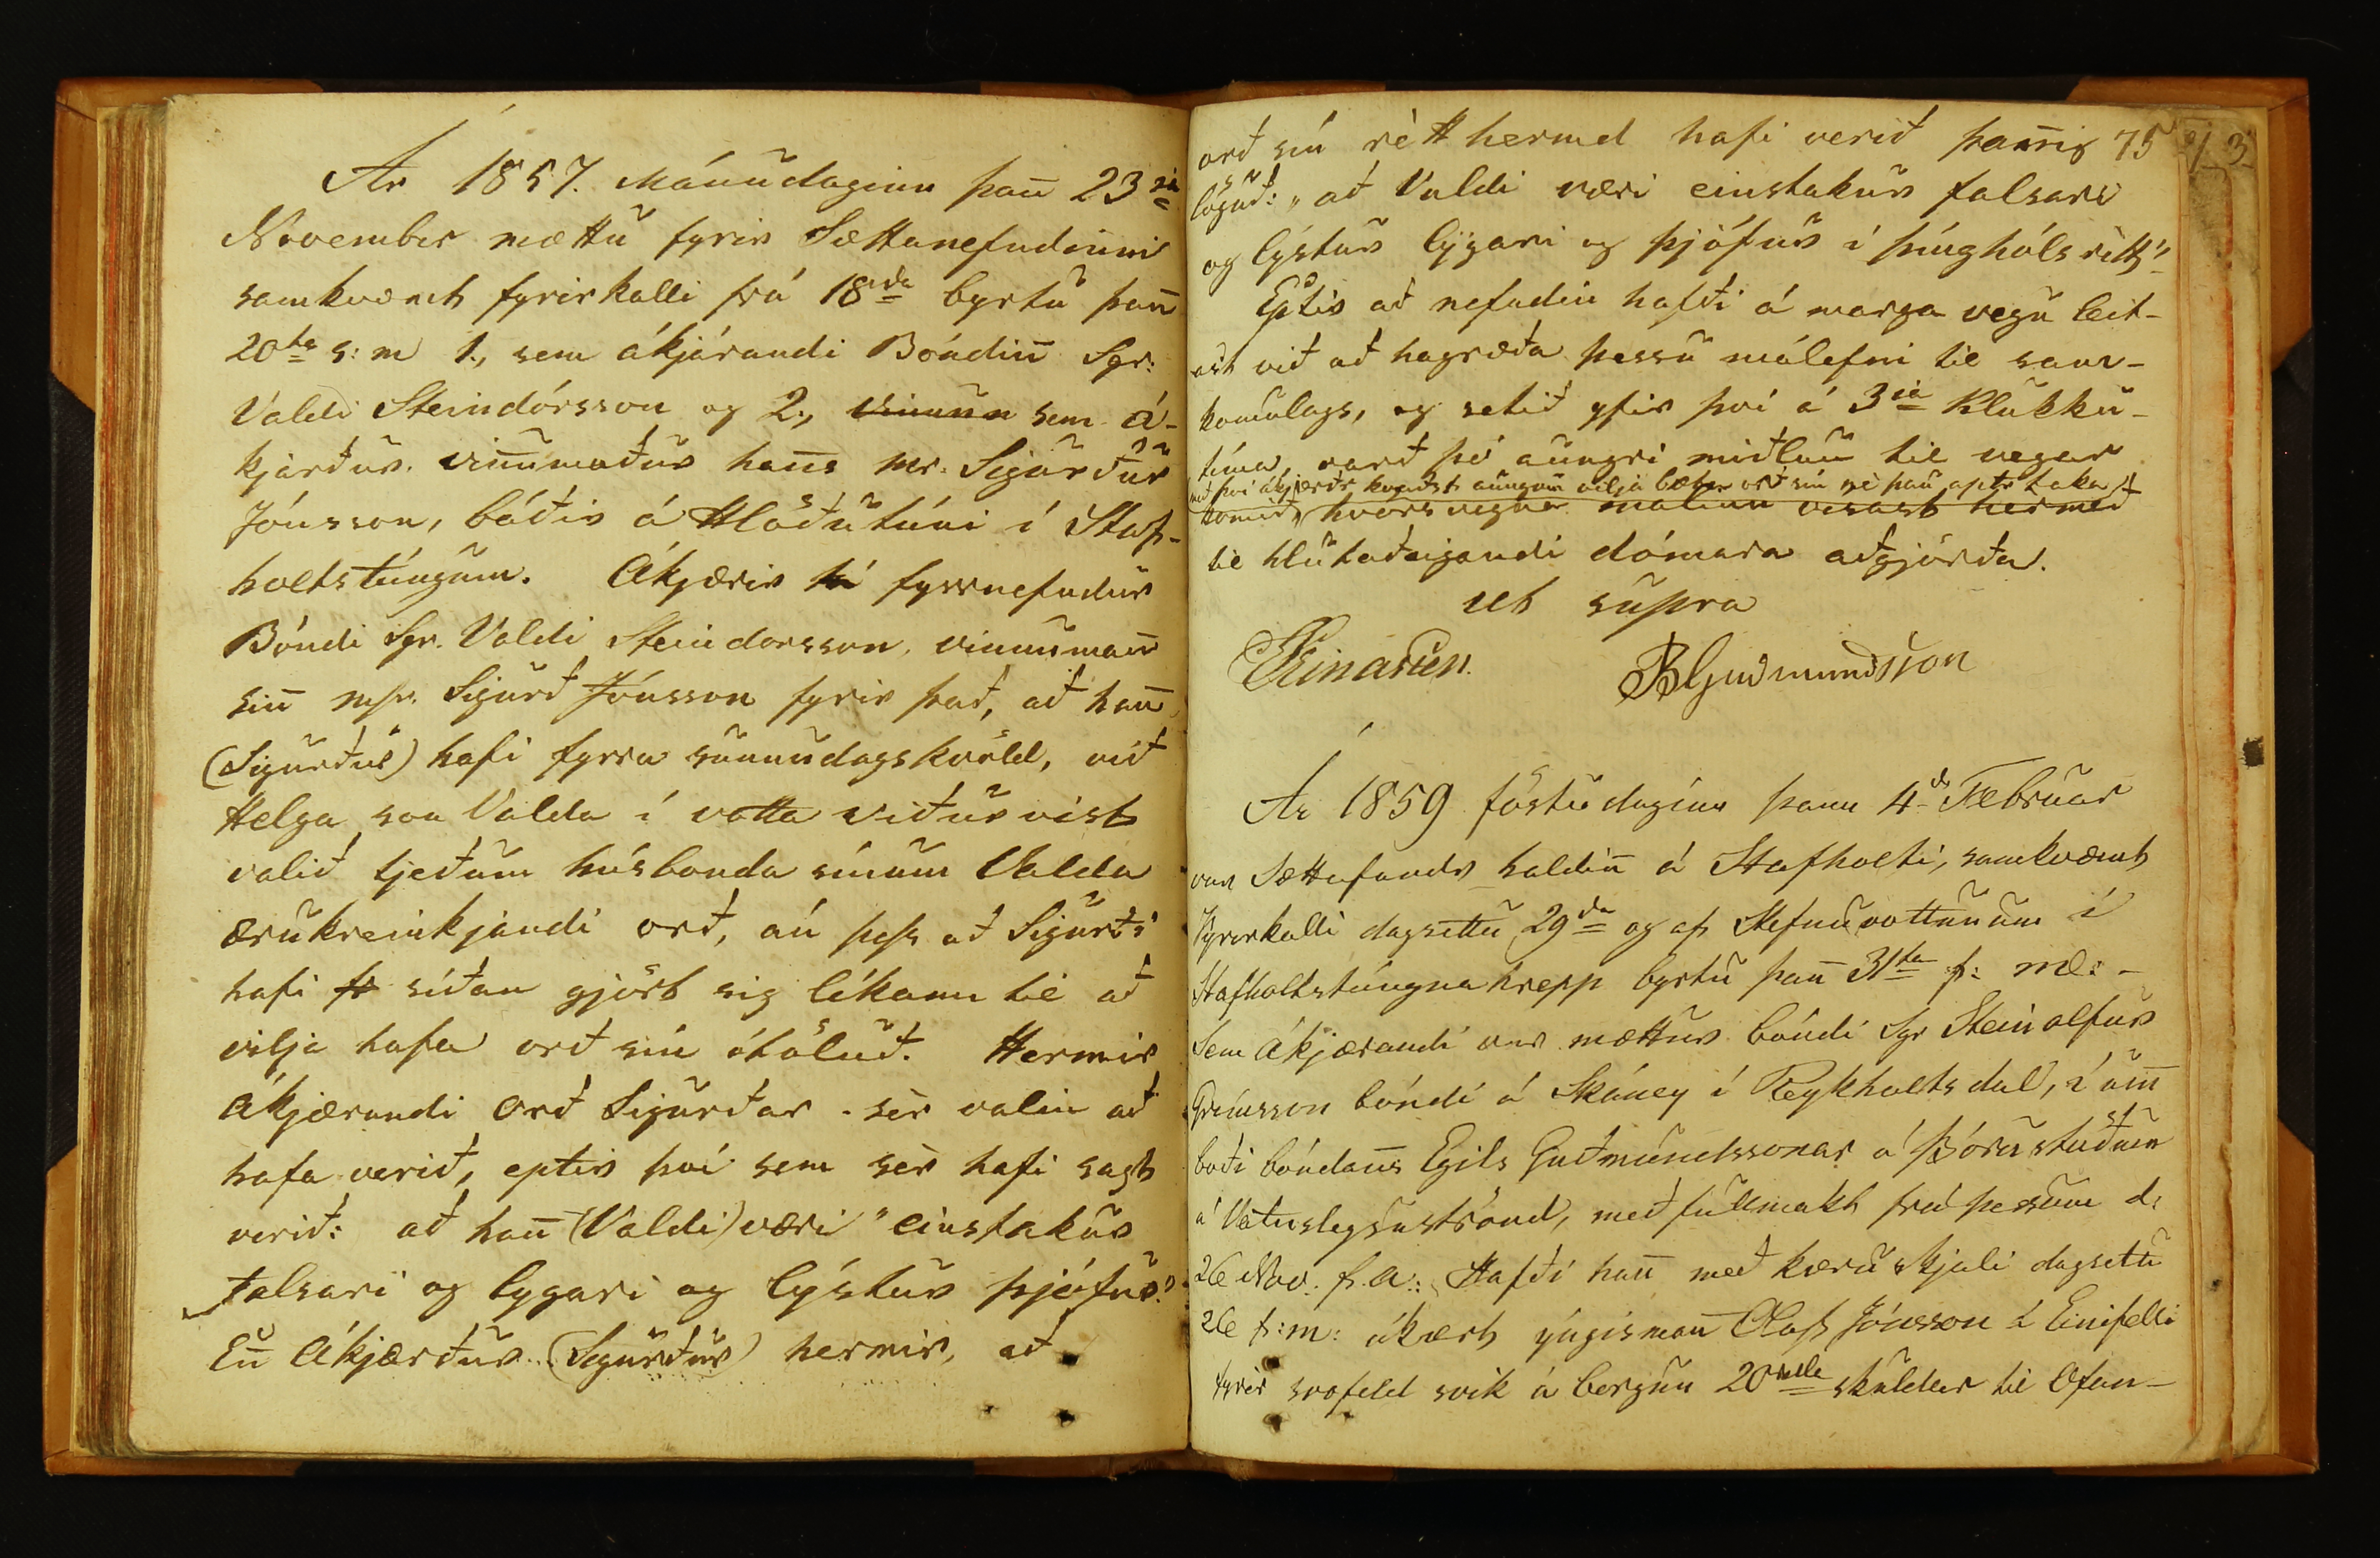 Ár 1857. Mánudaginn þan̄ 23ia
November mættu fyrir Sættanefndinni
samkvæmt fyrirkalli frá 18da byrtu þan̄
20ta s: m 1., sem ákjærandi Bóndin̄ Sgr:
Valdi Steindórsson og 2., sem á-
kjærður. vin̄umaður han̄s Mr. Sigurður
Jónsson, báðir á Hlöðutúni í Staf-
holtstúngum. Ákjærir fyrrnefndur
Bóndi Sgr. Valdi Steindorsson, vinnuman̄
sin̄ Mr. Sigurð Jónsson fyrir það, að han̄
(Sigurður) hafi fyrra sunnudagskvöld, við
Helga son Valda í votta viðurvist
valið tjeðum húsbonda sínum Valda
ærukreinkjandi orð, án þess að Sigurðr
hafi síðan gjört sig líkann til að
vilja hafa orð sín ótöluð. Hermir
Ákjærandi Orð Sigurðar sèr valin að
hafa verið, eptir því sem sèr hafi sagt
verið: að han̄ (Valdi) væri "einstakur
falsari og lygari og lýstur þjófur"
En̄ Ákjærður (Sigurður) hermir, að
orð sín rètt hermd hafi verið þan̄ig 75
löguð: "að Valdi væri einstakur falsari
og lýstur lýgari og þjófur í þínghóls rètti"
Eptir að nefndin hafði á marga vegu leit-
ast við að hagræða þessu málefni til sam-
komulags, og setið yfir því á 3ia Klukku-
tíma, varð þó aungri miðlun til vegar
með því ákjærðr kvaðst aungvu vilja bæta orð sín nè þau aptr taka
komið, hvørs vegna málinu vísast hermeð
til hlutaðeigandi dómara aðgjörða.
ut supra
Einarsen. BGudmundsson
Ár 1859 föstudaginn þann 4da Februar
var Sættafundr haldin̄ á Stafholti, samkvæmt
Fyrirkalli dagsettu 29da og af Stefnuvottunum í
Stafholtstúngnahrepp byrtu þan̄ 31ta f: m:-
Sem Ákjærandi var mættur bóndi Sgr Steinolfur
Grímsson bóndi á Skáney í Reykholtsdal, í um̄
boði bóndan̄s Egils Guðmundssonar á Þórustöðum
á Vatnsleysuströnd, með fullmakt frá þessum d:
26 Nov. f. a: Hafði han̄ með kæruskjali dagsettu
26 f:m: ákært ýngisman̄ Olaf Jónsson á Einifelli
fyrir svofeld svik á borgun 20 skuldar til Ofan-